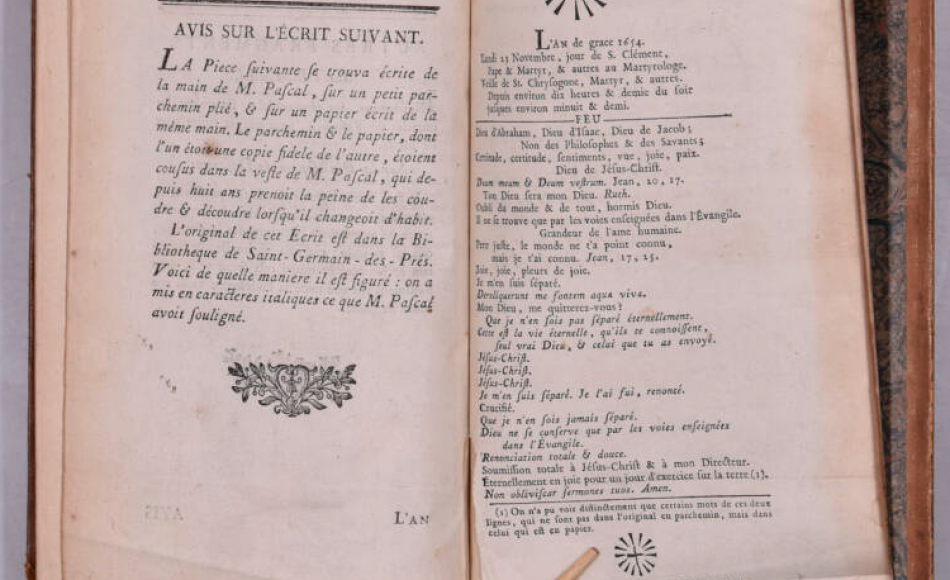 AVIS SUR L'ÉCRIT SUIVANT.
LA Piece ſuivante ſe trouva écrite de
la main de M. Paſcal, ſur un petit par-
chemin plié, & ſur un papier écrit de la
même main. Le parchemin & le papier, dont
l'un étoit une copie fidele de l'autre, étoient
couſus dans la veſte de M. Paſcal, qui de-
puis huit ans prenoit la peine de les cou-
dre & découdre lorſqu'il changeoit d'habit.
L'original de cet Ecrit eſt dans la Bi-
bliotheque de Saint-Germain-des-Prés.
Voici de quelle maniere il eſt figuré : on a
mis en caracteres italiques ce que M. Paſcal
avoit ſouligné.
L'AN
L'AN de grace 1654.
Lundi 23 Novembre, jour de S. Clément,
Pape & Martyr, & autres au Martyrologe.
Veille de St. Chryſogone, Martyr, & autres.
Depuis environ dix heures & demie du ſoir
juſques environ minuit & demi.
FEU
Dieu d'Abraham, Dieu d'Iſaac, Dieu de Jacob;
Non des Philoſophes & des Savants;
Certitude, certitude, ſentiments, vue, joie, paix.
Dieu de Jéſus-Chriſt.
Deum meum & Deum veſtrum. Jean, 20, 17.
Ton Dieu ſera mon Dieu. Ruth.
Oubli du monde & de tout, hormis Dieu.
Il ne ſe trouve que par les voies enſeignées dans l'Évangile.
Grandeur de l'ame humaine.
Pere juſte, le monde ne t'a point connu,
mais je t'ai connu. Jean, 17, 25.
Joie, joie, pleurs de joie.
Je m'en ſuis ſéparé.
Dereliquerunt me fontem aquæ vivæ.
Mon Dieu, me quitterez-vous?
Que je n'en ſois pas ſéparé éternellement.
Cette eſt la vie éternelle, qu'ils te connoiſſent,
ſeul vrai Dieu, & celui que tu as envoyé.
Jéſus-Chriſt.
Jéſus-Chriſt.
Jéſus-Chriſt.
Je m'en ſuis ſéparé. Je l'ai fui, renoncé.
Crucifié.
Que je n'en ſois jamais ſéparé.
Dieu ne ſe conſerve que par les voies enſeignées
dans l'Évangile.
Renonciation totale & douce.
Soumiſſion totale à Jéſus-Chriſt & à mon Directeur.
Éternellement en joie pour un jour d'exercice ſur la terre (1).
Non obliviſcar ſermones tuos. Amen.
(1) On n'a pu voir diſtinctement que certains mots de ces deux
lignes, qui ne ſont pas dans l'original en parchemin, mais dans
celui qui eſt en papier.